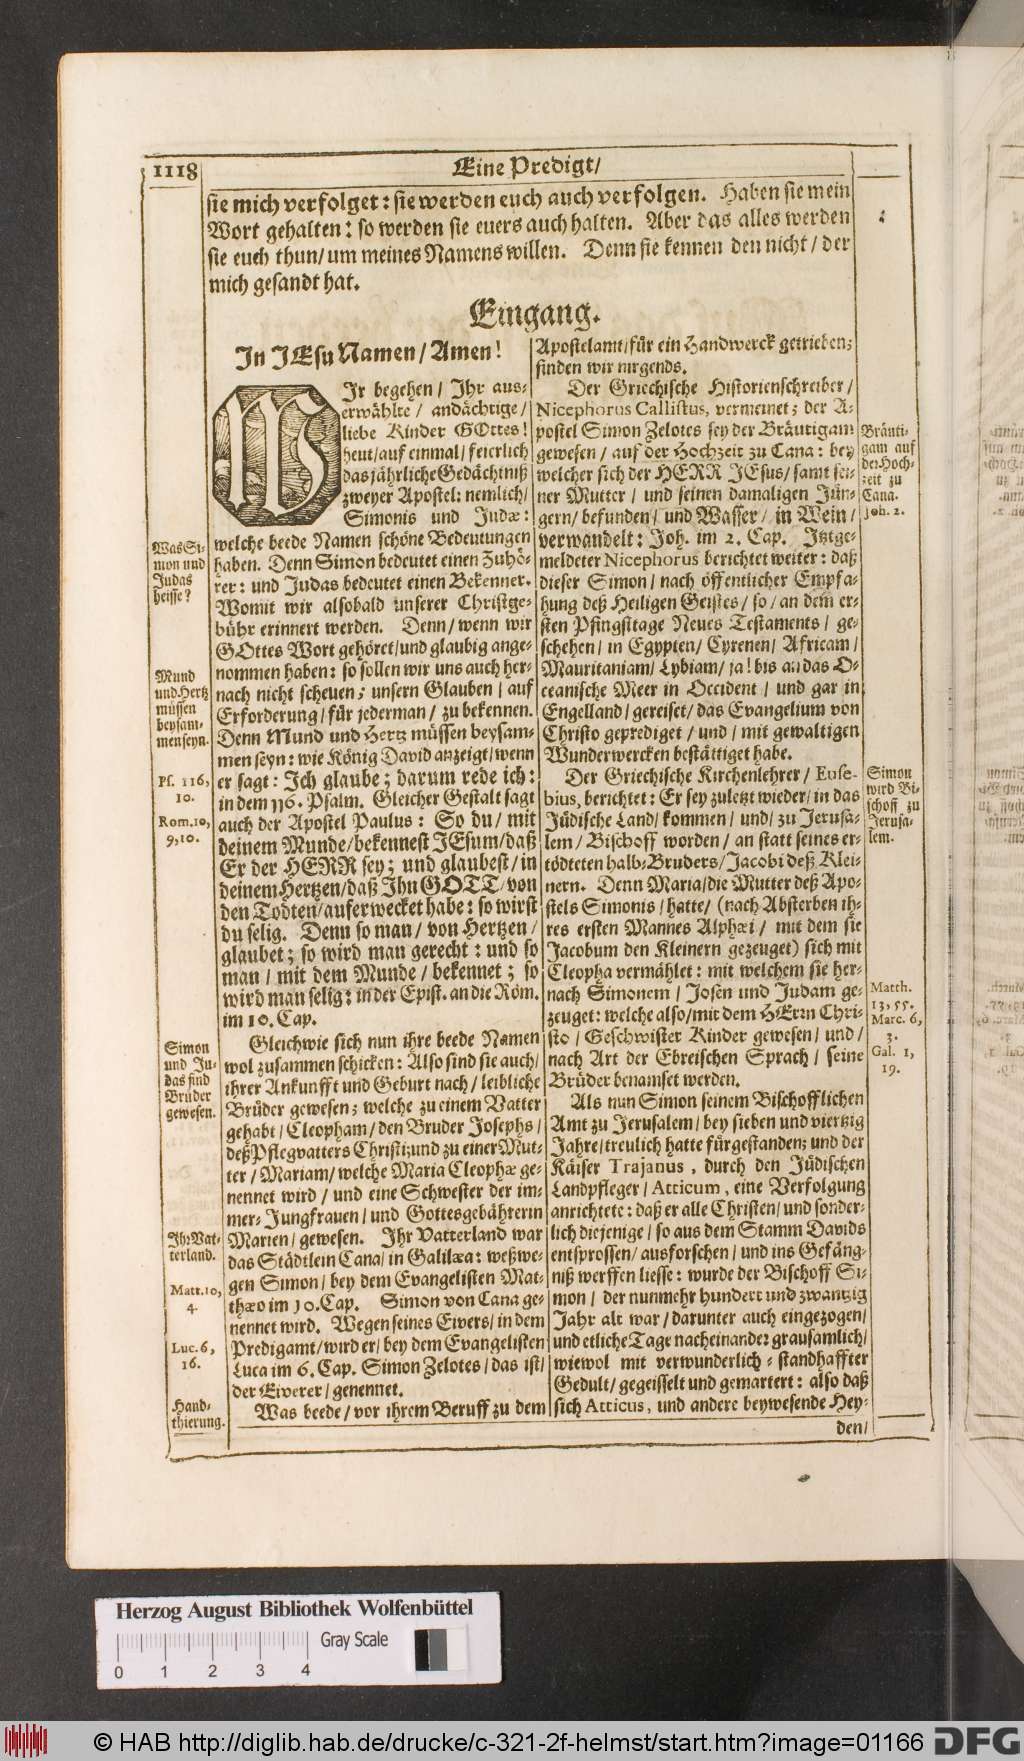 1118
Eine Predigt/
sie mich verfolget: sie werden euch auch verfolgen. Haben sie mein
Wort gehalten: so werden sie euers auch halten. Aber das alles werden
sie euch thun/ um meines Namens willen. Denn sie kennen den nicht/ der
mich gesandt hat.
Eingang.
In JEsu Namen/ Amen!
WIr begehen/ Ihr aus-
erwählte/ andächtige/
liebe Kinder GOttes!
heut/ auf einmal/ feierlich
das jährliche Gedächtniß
zweyer Apostel: nemlich/
Simonis und Judæ:
welche beede Namen schöne Bedeutungen
haben. Denn Simon bedeutet einen Zuhö-
rer: und Judas bedeutet einen Bekenner.
Womit wir alsobald unserer Christge-
bühr erinnert werden. Denn/ wenn wir
GOttes Wort gehöret/ und glaubig ange-
nommen haben: so sollen wir uns auch her-
nach nicht scheuen; unsern Glauben/ auf
Erforderung/ für jederman/ zu bekennen.
Denn Mund und Hertz müssen beysam-
men seyn: wie König David anzeigt/ wenn
er sagt: Ich glaube; darum rede ich:
in dem 116. Psalm. Gleicher Gestalt sagt
auch der Apostel Paulus: So du/ mit
deinem Munde/ bekennest JEsum/ daß
Er der HERR sey; und glaubest/ in
deinem Hertzen/ daß Ihn GOTT/ von
den Todten/ auferwecket habe: so wirst
du selig. Denn so man/ von Hertzen/
glaubet; so wird man gerecht: und so
man/ mit dem Munde/ bekennet; so
wird man selig: in der Epist. an die Röm.
im 10. Cap.
Gleichwie sich nun ihre beede Namen
wol zusammen schicken: Also sind sie auch/
ihrer Ankunfft und Geburt nach/ leibliche
Brüder gewesen; welche zu einem Vatter
gehabt/ Cleopham/ den Bruder Josephs/
deß Pflegvatters Christi; und zu einer Mut-
ter/ Mariam/ welche Maria Cleophæ ge-
nennet wird/ und eine Schwester der im-
mer-Jungfrauen/ und Gottesgebährerin
Marien/ gewesen. Ihr Vatterland war
das Städtlein Cana/ in Galilæa: weßwe-
gen Simon/ bey dem Evangelisten Mat-
thæo im 10. Cap. Simon von Cana ge-
nennet wird. Wegen seines Eivers/ in dem
Predigamt/ wird er/ bey dem Evangelisten
Luca im 6. Cap. Simon Zelotes/ das ist/
der Eiverer/ genennet.
Was beede/ vor ihrem Beruff zu dem
Was Si-
mon und
Judas
heisse?
Mund
und Hertz
müssen
beysam-
men seyn.
Ps. 116,
10.
Rom. 10,
9, 10.
Simon
und Ju-
das sind
Brüder
gewesen.
Ihr Vat-
terland.
Matt. 10,
4.
Luc. 6,
16.
Hand-
thierung.
Apostelamt/ für ein Handwerck getrieben;
finden wir nirgends.
Der Griechische Historienschreiber/
Nicephorus Callistus, vermeinet; der A-
postel Simon Zelotes sey der Bräutigam
gewesen/ auf der Hochzeit zu Cana: bey
welcher sich der HERR JEsus/ samt sei-
ner Mutter/ und seinen damaligen Jün-
gern/ befunden/ und Wasser/ in Wein/
verwandelt: Joh. im 2. Cap. Itztge-
meldeter Nicephorus berichtet weiter: daß
dieser Simon/ nach öffentlicher Empfa-
hung deß Heiligen Geistes/ so/ an dem er-
sten Pfingsttage Neues Testaments/ ge-
schehen/ in Egypten/ Cyrenen/ Africam/
Mauritaniam/ Lybiam/ ja! bis an das O-
ceanische Meer in Occident/ und gar in
Engelland/ gereiset/ das Evangelium von
Christo geprediget/ und/ mit gewaltigen
Wunderwercken bestättiget habe.
Der Griechische Kirchenlehrer/ Euse-
bius, berichtet: Er sey zuletzt wieder/ in das
Jüdische Land/ kommen/ und/ zu Jerusa-
lem/ Bischoff worden/ an statt seines er-
tödteten halb-Bruders/ Jacobi deß Klei-
nern. Denn Maria/ die Mutter deß Apo-
stels Simonis/ hatte/ (nach Absterben ih-
res ersten Mannes Alphæi/ mit dem sie
Jacobum den Kleinern gezeuget) sich mit
Cleopha vermählet: mit welchem sie her-
nach Simonem/ Josen und Judam ge-
zeuget: welche also/ mit dem HErrn Chri-
sto/ Geschwister Kinder gewesen/ und/
nach Art der Ebreischen Sprach/ seine
Brüder benamset werden.
Als nun Simon seinem Bischofflichen
Amt zu Jerusalem/ bey sieben und viertzig
Jahre/ treulich hatte fürgestanden; und der
Käiser Trajanus, durch den Jüdischen
Landpfleger/ Atticum, eine Verfolgung
anrichtete: daß er alle Christen/ und sonder-
lich diejenige/ so aus dem Stamm Davids
entsprossen/ ausforschen/ und ins Gefäng-
niß werffen liesse: wurde der Bischoff Si-
mon/ der nunmehr hundert und zwantzig
Jahr alt war/ darunter auch eingezogen/
und etliche Tage nacheinander grausamlich/
wiewol mit verwunderlich-standhaffter
Gedult/ gegeisselt und gemartert: also daß
sich Atticus, und andere beywesende Hey-
den/
Bräuti-
gam auf
der Hoch-
zeit zu
Cana.
Joh. 2.
Simon
wird Bi-
schoff zu
Jerusa-
lem.
Matth.
13, 55.
Marc. 6,
3.
Gal. 1,
19.
Herzog August Bibliothek Wolfenbüttel
Gray Scale
0 1 2 3 4
© HAB http://diglib.hab.de/drucke/c-321-2f-helmst/start.htm?image=01166
DFG